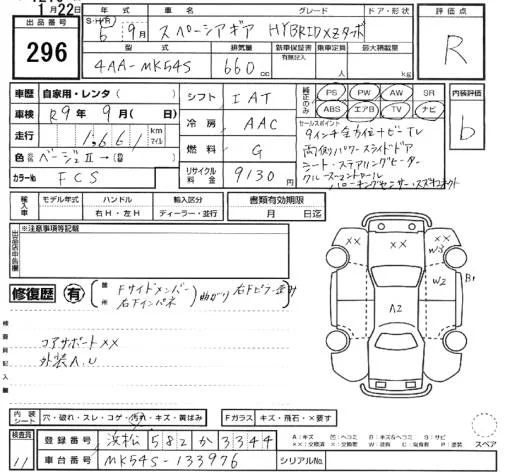 1月22日
年式 車名 グレード ドア・形状 評価点
出品番号 S・H(R) 6年 9月 スペーシアギア HYBRID XZターボ
296
R
型式 排気量 新車保証書 乗車定員 最大積載量
有無記入
4AA-MK54S 660 cc 人 kg
車歴 自家用・レンタ( )
シフト IAT
純正のみ PS PW AW SR
ABS エアB TV ナビ
内装評価
b
車検 R9年 9月( 日)
冷房 AAC
セールスポイント
9インチ全方位ナビTV
走行 1,661 km マイル
両側パワースライドドア
燃料 G
シート・ステアリングヒーター
色 ベージュII→(替)
クルーズコントロール
カラーNo FCS
リサイクル料金 9130円
パーキングセンサー・スズキコネクト
輸入車 モデル年式 ハンドル 輸入区分 書類有効期限
年 右H・左H ディーラー・並行 月 日迄
出品店申告欄 ※注意事項等記載
修復歴 有 箇所 Fサイドメンバー 右Fインパネ 曲がり 右Fピラー歪み
検査員記入欄
コアサポートXX
外装A.U
XX XX XX W3 W2 B1 A2
内装シート 穴・破れ・スレ・コゲ・汚れ・キズ・黄ばみ Fガラス キズ・飛石・X要す
検査員 11
登録番号 浜松 582 か 3344
A:キズ U:ヘコミ B:キズ&ヘコミ S:サビ
XX:交換済 X:交換要 W:波有 C:腐食有 P:塗装
スペア
車台番号 MK54S-133976 シリアルNo.